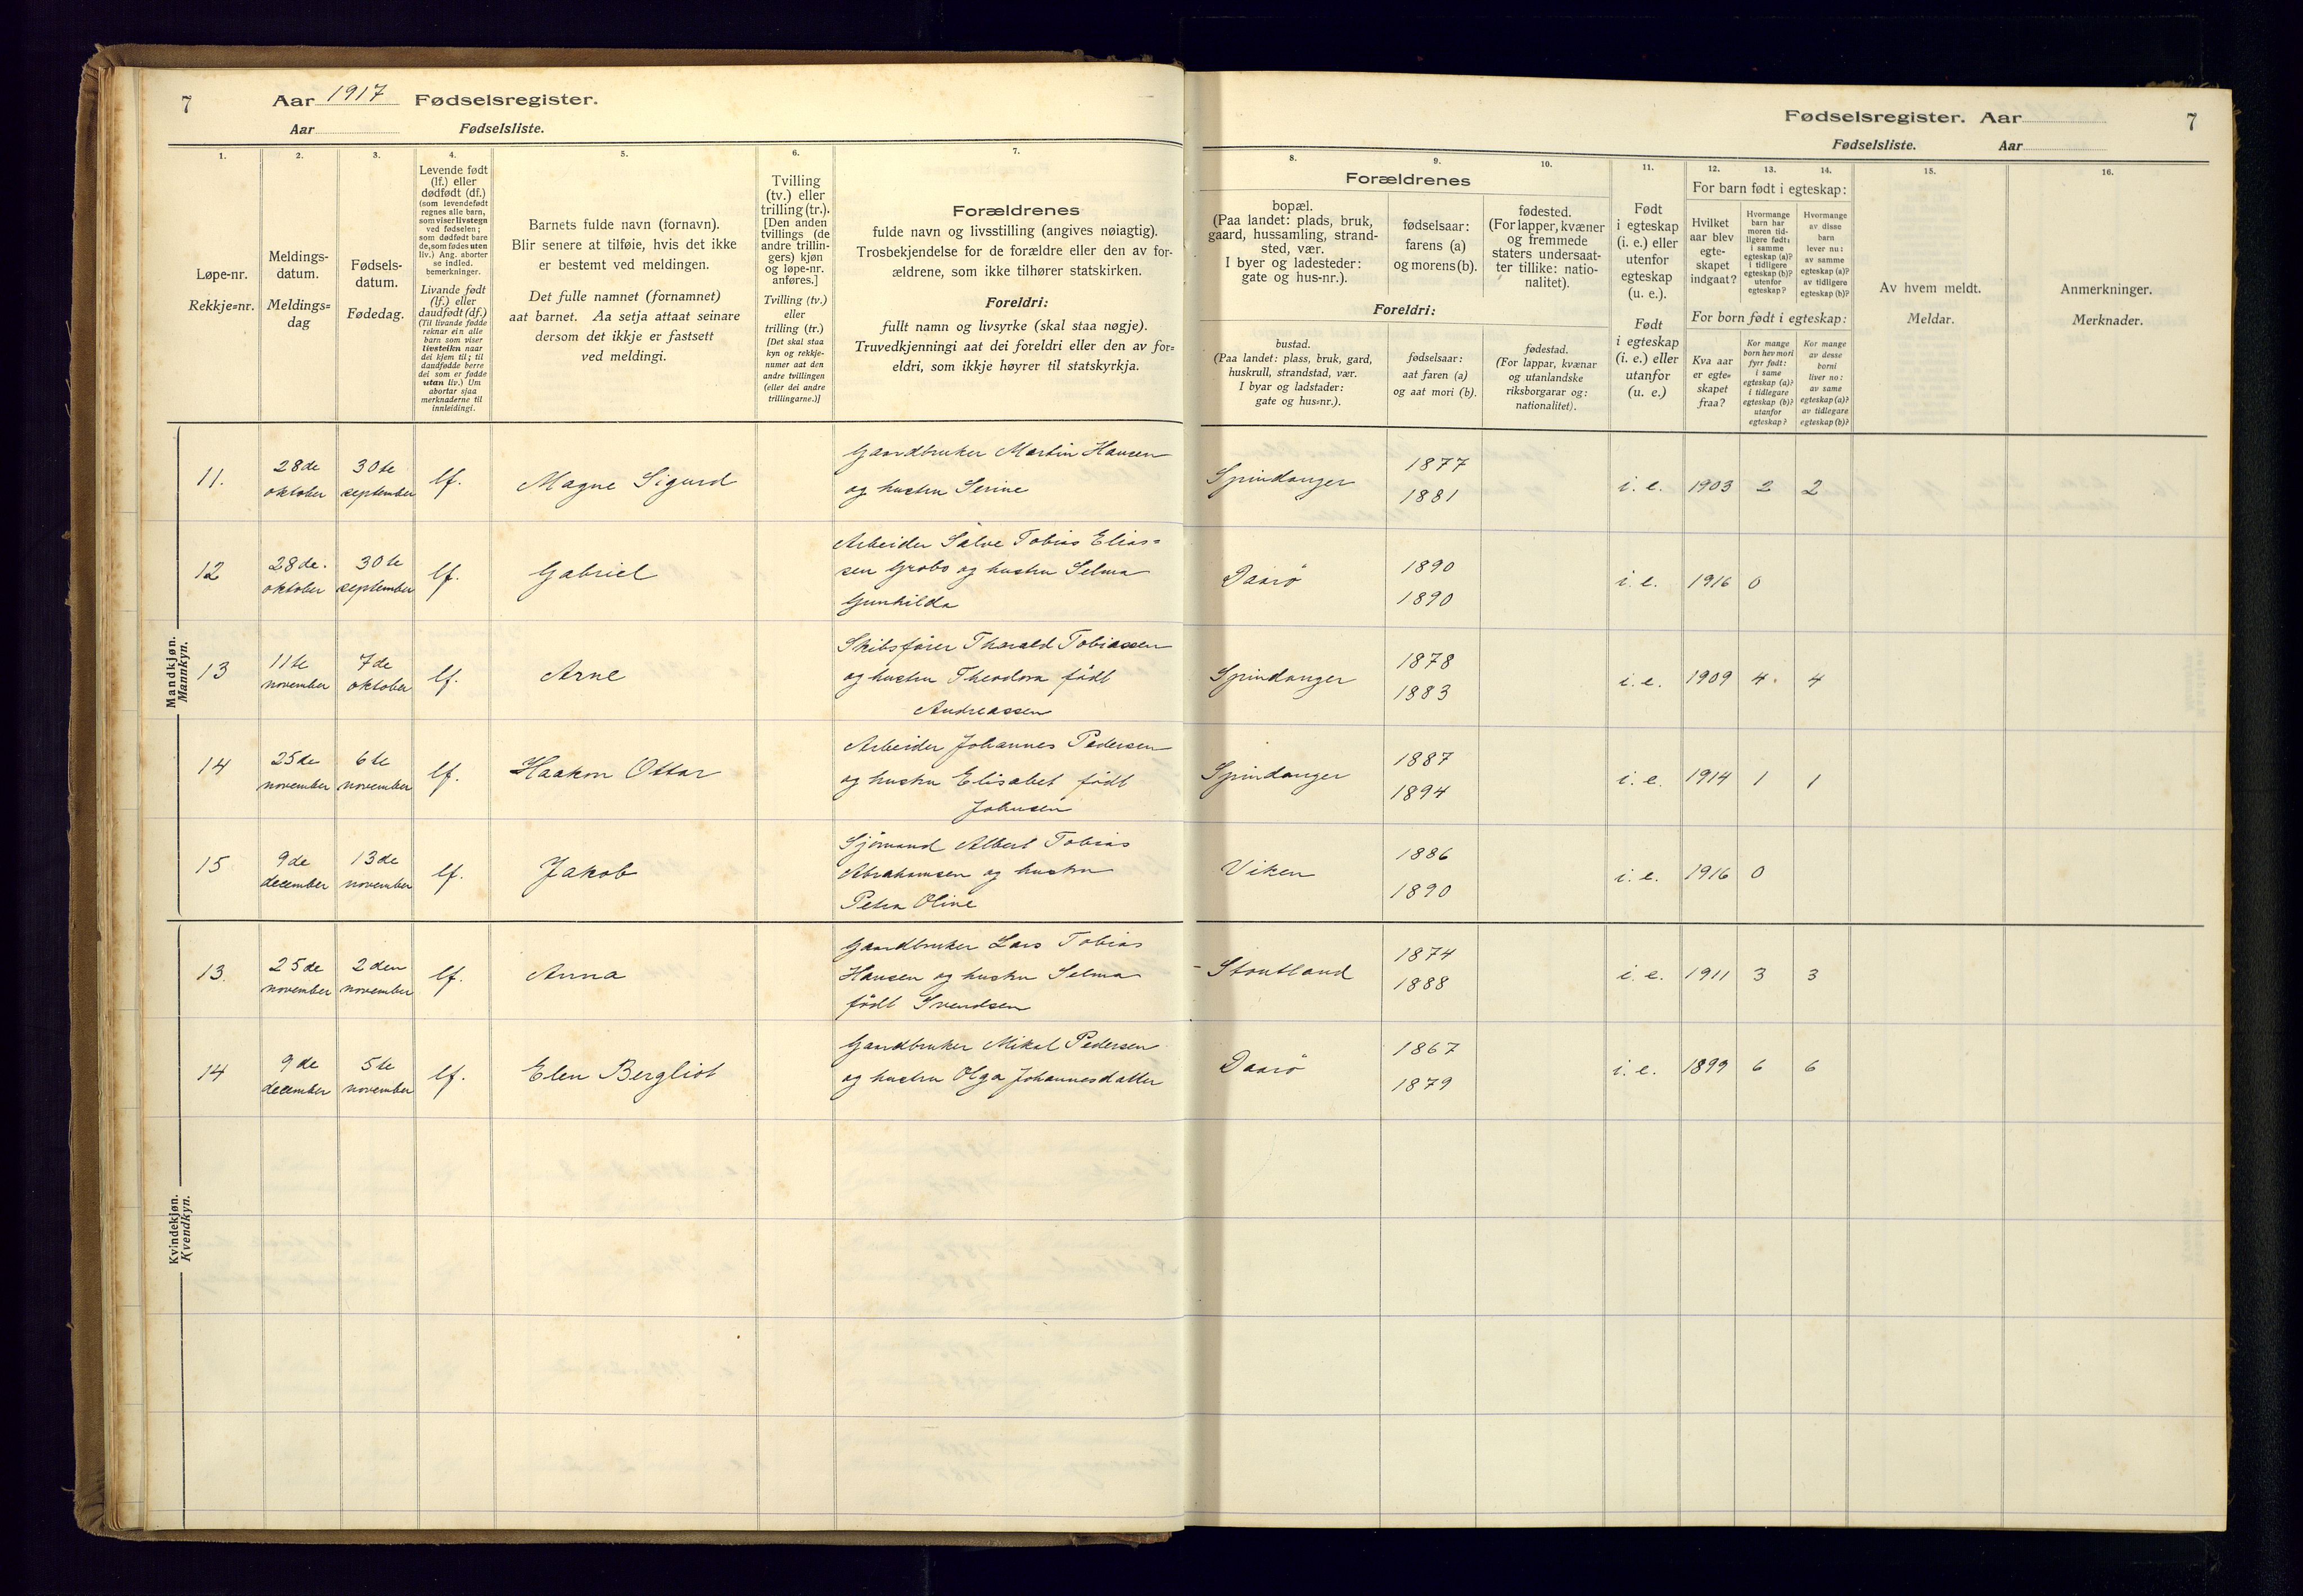 7 Aar 1917 Fødselsregister.
Aar Fødselsliste.
1.
Løpe-nr.
Rekkje=nr.
2.
Meldings-
datum.
Meldings=
dag
3.
Fødsels-
datum.
Fødedag.
4.
Levende født
(lf.) eller
dødfødt (df.)
(som levendefødt
regnes alle barn,
som viser livstegn
ved fødselen;
som dødfødt bare
de, som fødes uten
liv.) Ang. aborter
se indled.
bemerkninger.
Livande født
(lf.) eller
daudfødt (df.)
(Til livande fødde
reknar ein alle
barn som viser
livsteikn naar
dei kjem til; til
daudfødde berre
dei som er fødde
utan liv.) Um
abortar sjaa
merknaderne til
innleidingi.
5.
Barnets fulde navn (fornavn).
Blir senere at tilføie, hvis det ikke
er bestemt ved meldingen.
Det fulle namnet (fornamnet)
aat barnet. Aa setja attaat seinare
dersom det ikkje er fastsett
ved meldingi.
6.
Tvilling
(tv.) eller
trilling (tr.).
[Den anden
tvillings (de
andre trillin-
gers) kjøn
og løpe-nr.
anføres.]
Tvilling (tv.)
eller
trilling (tr.)
[Det skal staa
kyn og rekkje-
numer aat den
andre tvillingen
(eller dei andre
trillingarne.)]
7.
Forældrenes
fulde navn og livsstilling (angives nøiagtig).
Trosbekjendelse for de forældre eller den av for-
ældrene, som ikke tilhører statskirken.
Foreldri:
fullt namn og livsyrke (skal staa nøgje).
Truvedkjenningi aat dei foreldri eller den av for=
eldri, som ikkje høyrer til statskyrkja.
Mandkjøn.
Mannkyn.
11. 28de oktober 30te september lf. Magne Sigurd
Gaardbruker Martin Hansen
og hustru Serine
12 28de. oktober 30te september lf. Gabriel
Arbeider Salve Tobias Elias=
sen Grobs og hustru Selma
Gunhilda
13 11te november 7de oktober lf. Arne
Skibsfører Tharald Tobiassen
og hustru Theodora født
Andreassen
14 25de november 6te november lf. Haakon Ottar
Arbeider Johannes Pedersen
og hustru Elisabet født
Johnsen
15 9de december 13de november lf. Jakob
Sjømand Albert Tobias
Abrahamsen og hustru
Petra Oline
Kvindekjøn.
Kvendkyn.
13. 25de november 2den november lf. Anna
Gaardbruker Lars Tobias
Hansen og hustru Selma
født Svendsen
14 9de december 5te november lf. Elen Bergliot
Gaardbruker Mikal Pedersen
og hustru Olga Johannesdatter
Fødselsregister. Aar 7
Fødselsliste. Aar
8.
Forældrenes
bopæl.
(Paa landet: plads, bruk,
gaard, hussamling, strand-
sted, vær.
I byer og ladesteder:
gate og hus-nr.).
Foreldri:
bustad.
(Paa landet: plass, bruk, gard,
huskrull, strandstad, vær.
I byar og ladstader:
gate og hus=nr.).
9.
fødselsaar:
farens (a)
og morens (b).
fødselsaar:
aat faren (a)
og aat mori (b).
10.
fødested.
(For lapper, kvæner
og fremmede
staters undersaat-
ter tillike: natio-
nalitet).
fødestad.
(For lappar, kvænar
og utanlandske
riksborgarar og:
nationalitet).
11.
Født
i egteskap
(i. e.) eller
utenfor
egteskap
(u. e.).
Født
i egteskap
(i. e.) eller
utanfor
(u. e.)
12.
13.
14.
For barn født i egteskap:
Hvilket
aar blev
egte-
skapet
indgaat?
Hvormange
barn har
moren tid-
ligere født:
i samme
egteskap (a)?
i tidligere
egteskap (b)?
utenfor
egteskap?
Hvormange
av disse
barn
lever nu:
av samme
egteskap (a)?
av tidligere
egteskap (b)?
For born født i egteskap:
Kva aar
er egte=
skapet
fraa?
Kor mange
born hev mori
fyrr født:
i same
egteskap (a)?
i tidlegare
egteskap (b)?
utanfor
egteskap?
Kor mange
av desse
borni
liver no:
av same
egteskap (a)?
av tidlegare
egteskap (b)?
15.
Av hvem meldt.
Meldar.
16.
Anmerkninger.
Merknader.
Spindanger 1877 1881 i. e. 1903 2 2
Daarø 1890 1890 i. e. 1916 0
Spindanger 1878 1883 i. e. 1909 4. 4
Spindanger 1887 1894 i. e. 1914 1 1
Viken 1886 1890 i. e. 1916 0
Stoutland 1874 1888 i. e. 1911 3 3
Daarø 1867 1879 i. e. 1899 6 6